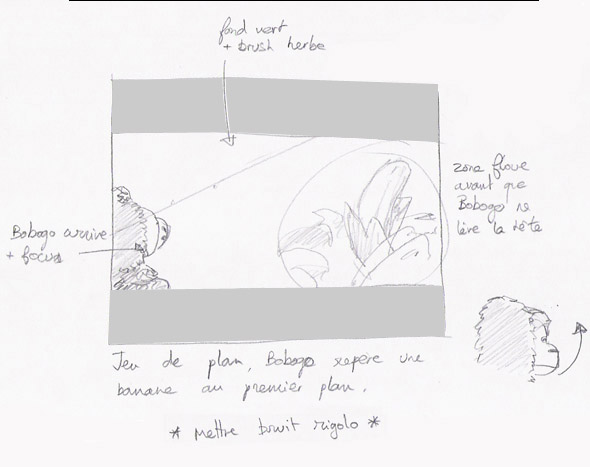 fond vert
+ brush herbe
zone floue
avant que
Bobogo ne
lève la tête
Bobogo arrive
+ focus
Jeu de plan, Bobogo repère une
banane au premier plan.
* mettre bruit rigolo *